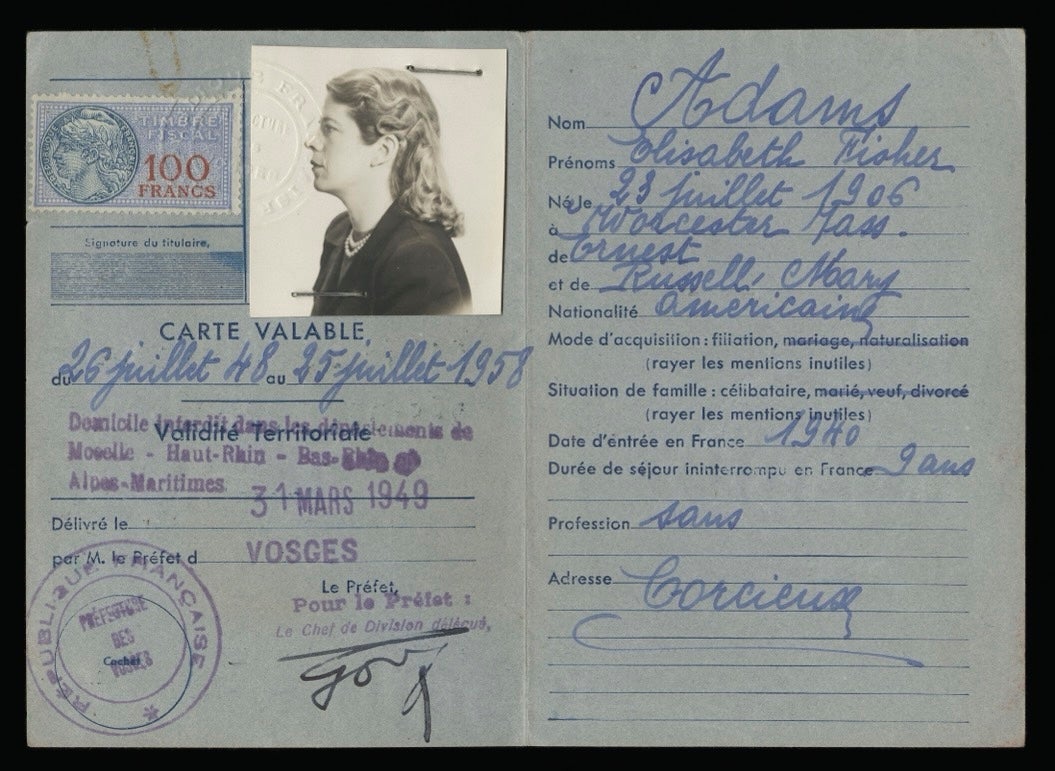 TIMBRE
FISCAL
100
FRANCS
Signature du titulaire,
CARTE VALABLE
du 26 juillet 48 au 25 juillet 1958
Validité Territoriale
Domicile interdit dans les départements de
Moselle - Haut-Rhin - Bas-Rhin
Alpes-Maritimes
31 MARS 1949
Délivré le
par M. le Préfet d VOSGES
Le Préfet,
Pour le Préfet :
Le Chef de Division délégué,
RÉPUBLIQUE FRANÇAISE
PRÉFECTURE
DES
VOSGES
Cachet
Nom Adams
Prénoms Elisabeth Fisher
Né le 23 juillet 1906
à Worcester Mass.
de Ernest
et de Russell, Mary
Nationalité américaine
Mode d'acquisition : filiation, mariage, naturalisation
(rayer les mentions inutiles)
Situation de famille : célibataire, marié, veuf, divorcé
(rayer les mentions inutiles)
Date d'entrée en France 1940
Durée de séjour ininterrompu en France 9 ans
Profession sans
Adresse Corcieux